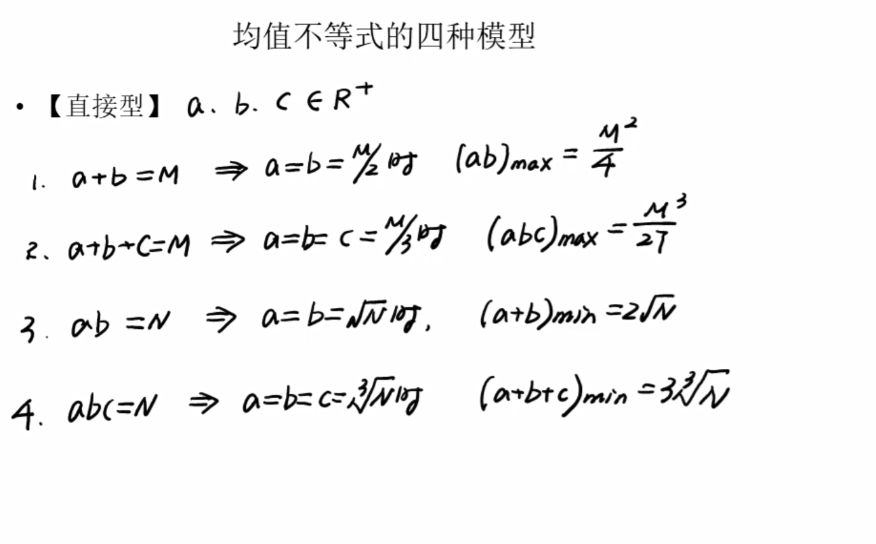 均值不等式的四种模型
• 【直接型】 a、b、C ∈ R⁺
1. a+b=M ⇒ a=b=M/2时 (ab)max = M²/4
2、a+b+C=M ⇒ a=b=c=M/3时 (abc)max = M³/27
3. ab=N ⇒ a=b=√N时, (a+b)min=2√N
4. abc=N ⇒ a=b=c=∛N时 (a+b+c)min=3∛N